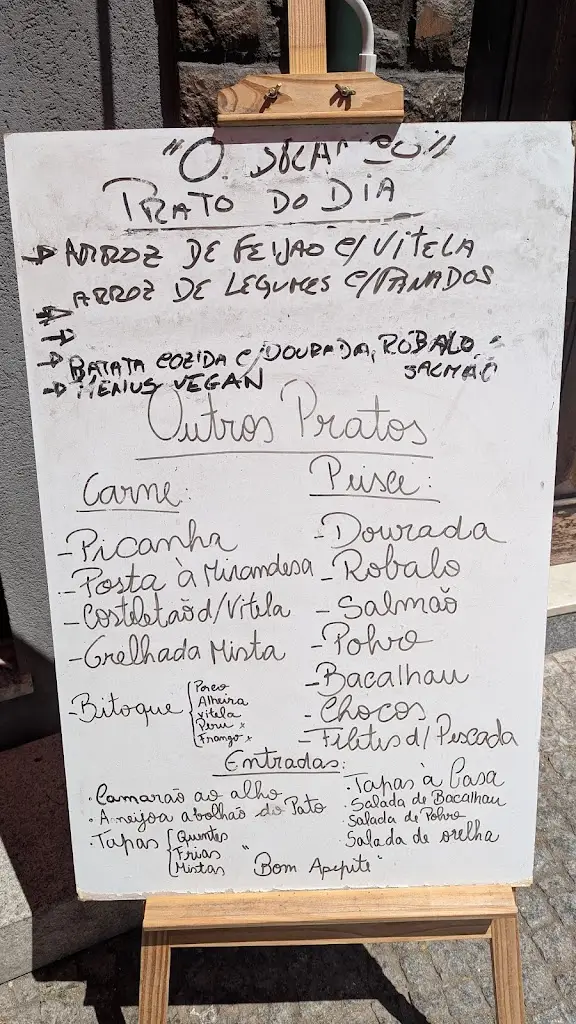 "O SOLAR DO"
PRATO DO DIA
→ ARROZ DE FEIJAO C/ VITELA
ARROZ DE LEGUMES C/PANADOS
→ BATATA COZIDA C/DOURADA, ROBALO
SALMÃO
→ MENUS VEGAN
Outros Pratos
Carne:
- Picanha
- Posta à Mirandesa
- Costeletão d/Vitela
- Grelhada Mista
- Bitoque { Porco
Alheira
Vitela
Peru x
Frango x
Peixe:
- Dourada
- Robalo
- Salmão
- Polvo
- Bacalhau
- Chocos
- Filetes d/ Pescada
Entradas:
· Camarão ao alho
· Ameijoa a bolhão do Pato
· Tapas { Quentes
Frias
Mistas
· Tapas à Casa
· Salada de Bacalhau
Salada de Polvo
Salada de orelha
"Bom Apepite"